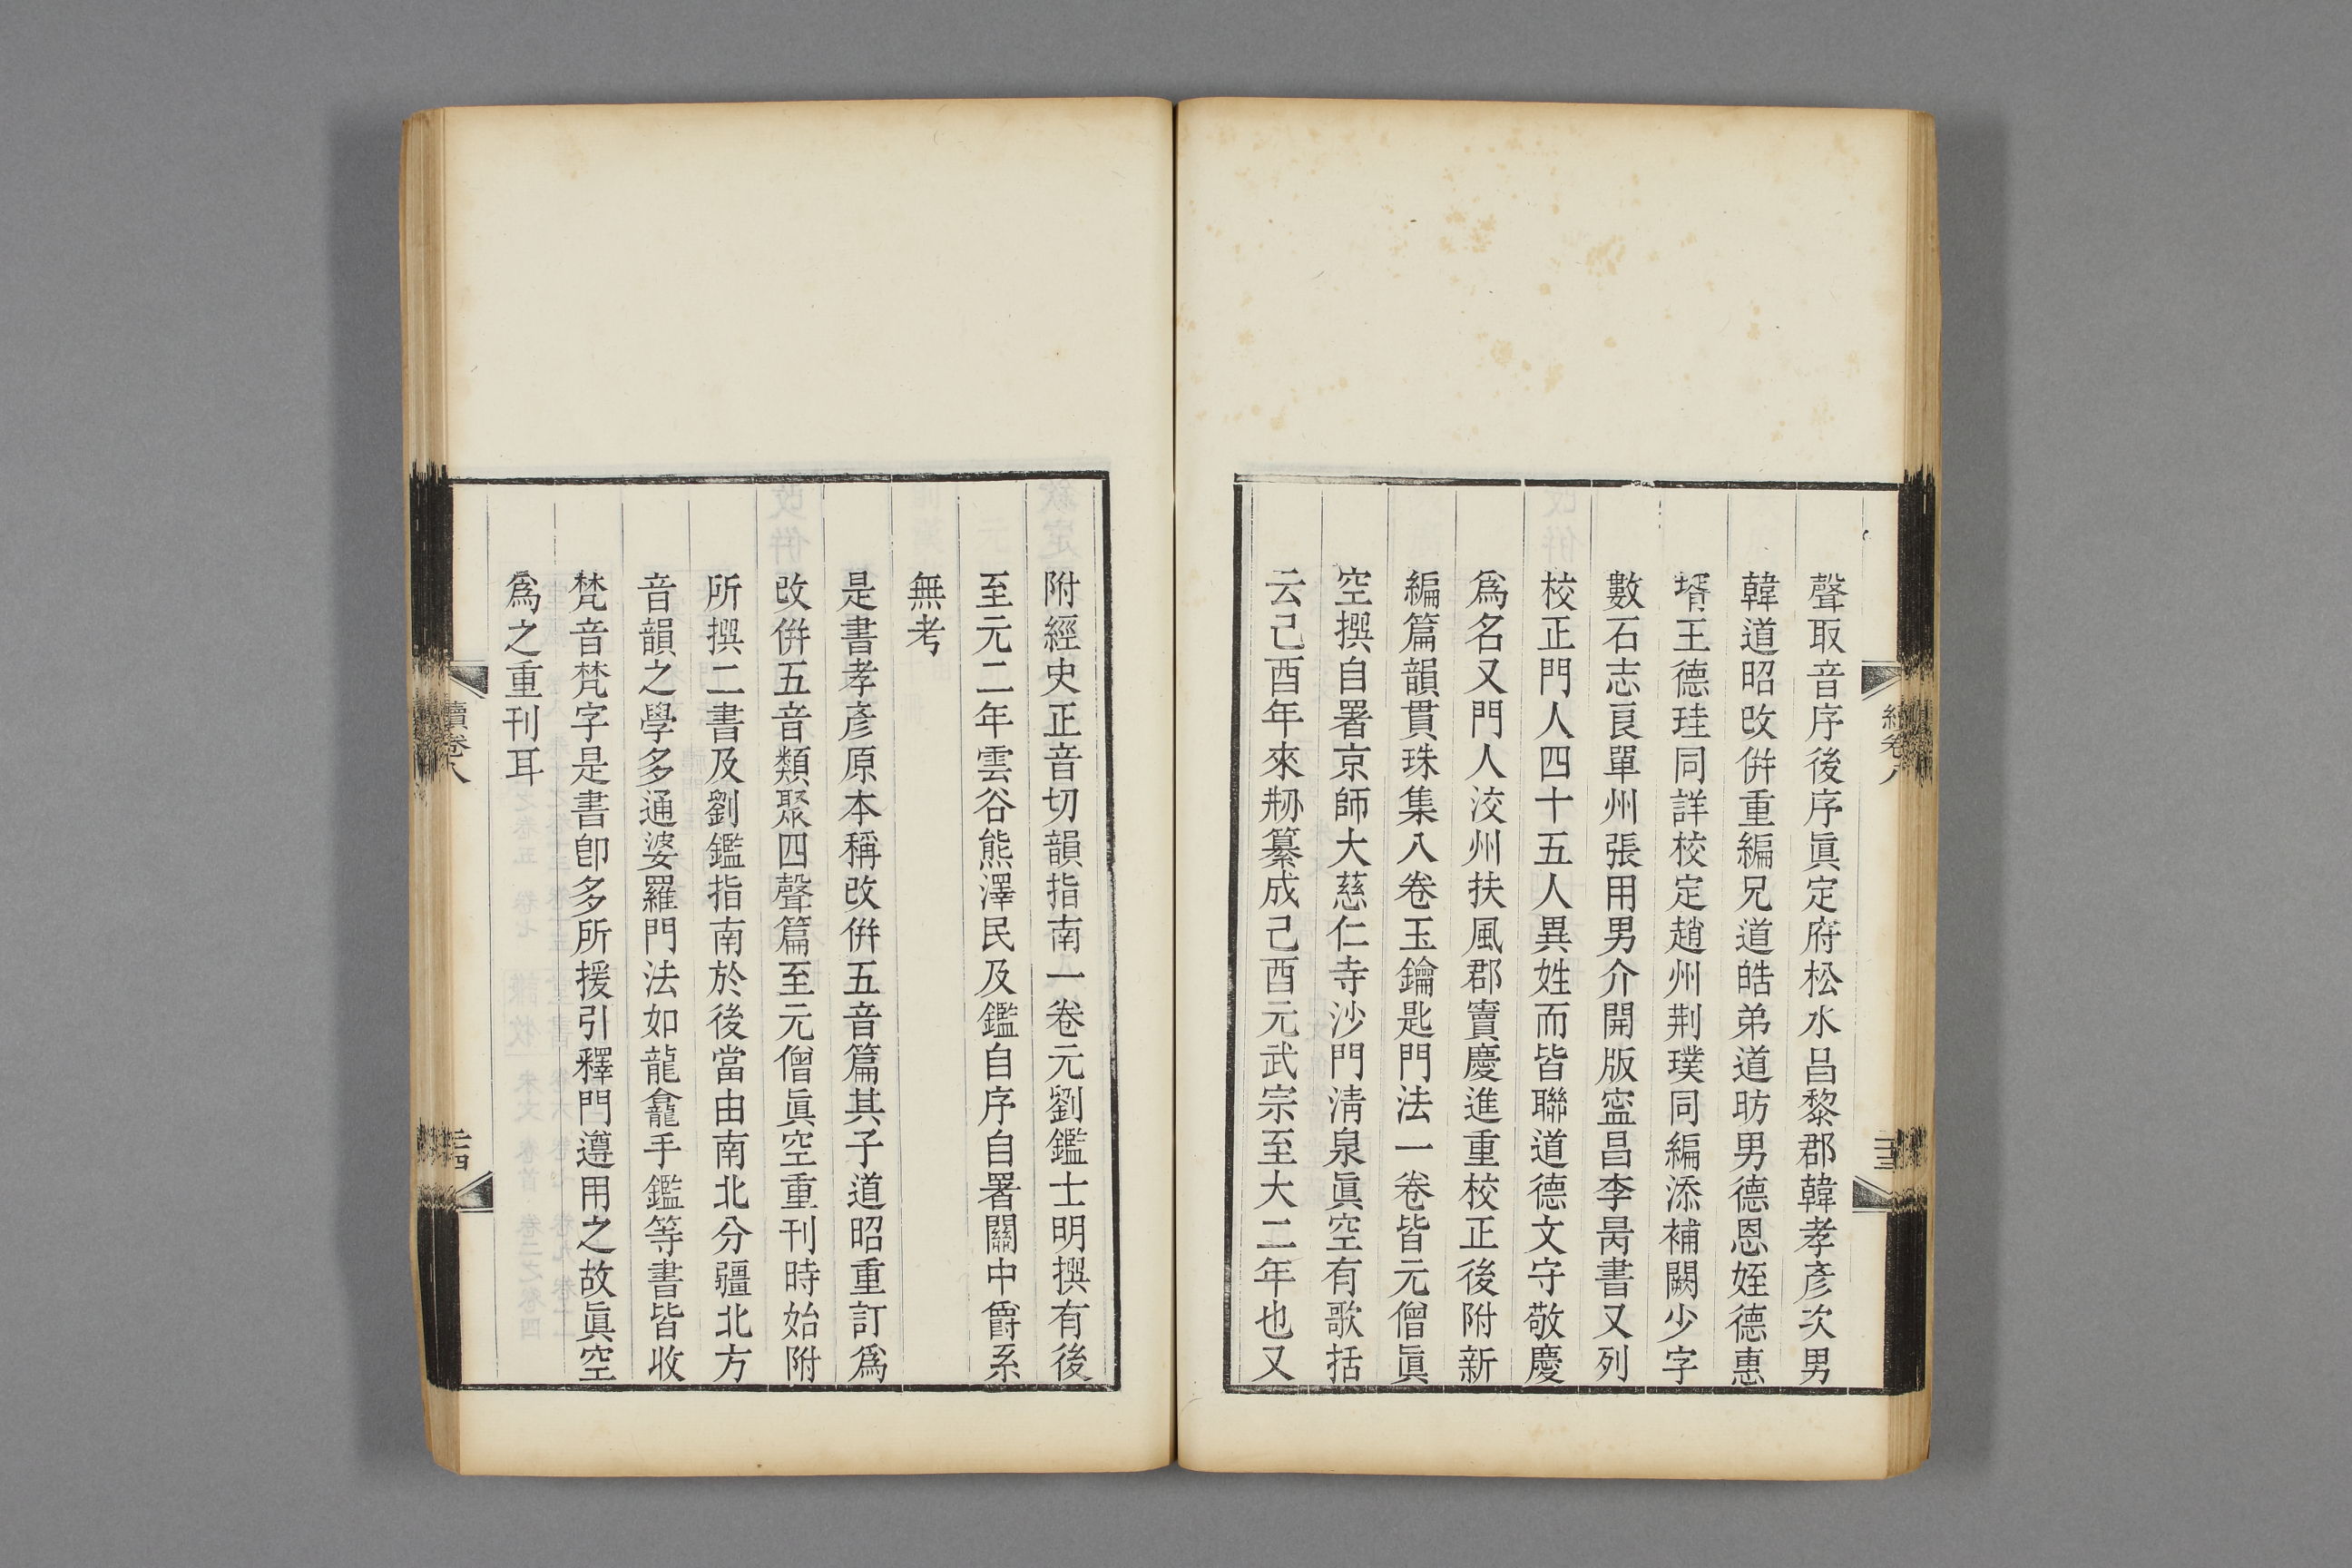 聲取音序後序眞定府松水昌黎郡韓孝彥次男
韓道昭改倂重編兄道皓弟道昉男德恩姪德惠
壻王德珪同詳校定趙州荆璞同編添補闕少字
數石志良單州張用男介開版寍昌李昺書又列
校正門人四十五人異姓而皆聯道德文守敬慶
爲名又門人洨州扶風郡竇慶進重校正後附新
編篇韻貫珠集八卷玉鑰匙門法一卷皆元僧眞
空撰自署京師大慈仁寺沙門淸泉眞空有歌括
云己酉年來剙纂成己酉元武宗至大二年也又
附經史正音切韻指南一卷元劉鑑士明撰有後
至元二年雲谷熊澤民及鑑自序自署關中爵系
無考
是書孝彥原本稱改倂五音篇其子道昭重訂爲
改倂五音類聚四聲篇至元僧眞空重刊時始附
所撰二書及劉鑑指南於後當由南北分疆北方
音韻之學多通婆羅門法如龍龕手鑑等書皆收
梵音梵字是書卽多所援引釋門遵用之故眞空
爲之重刊耳
續卷八
二十四